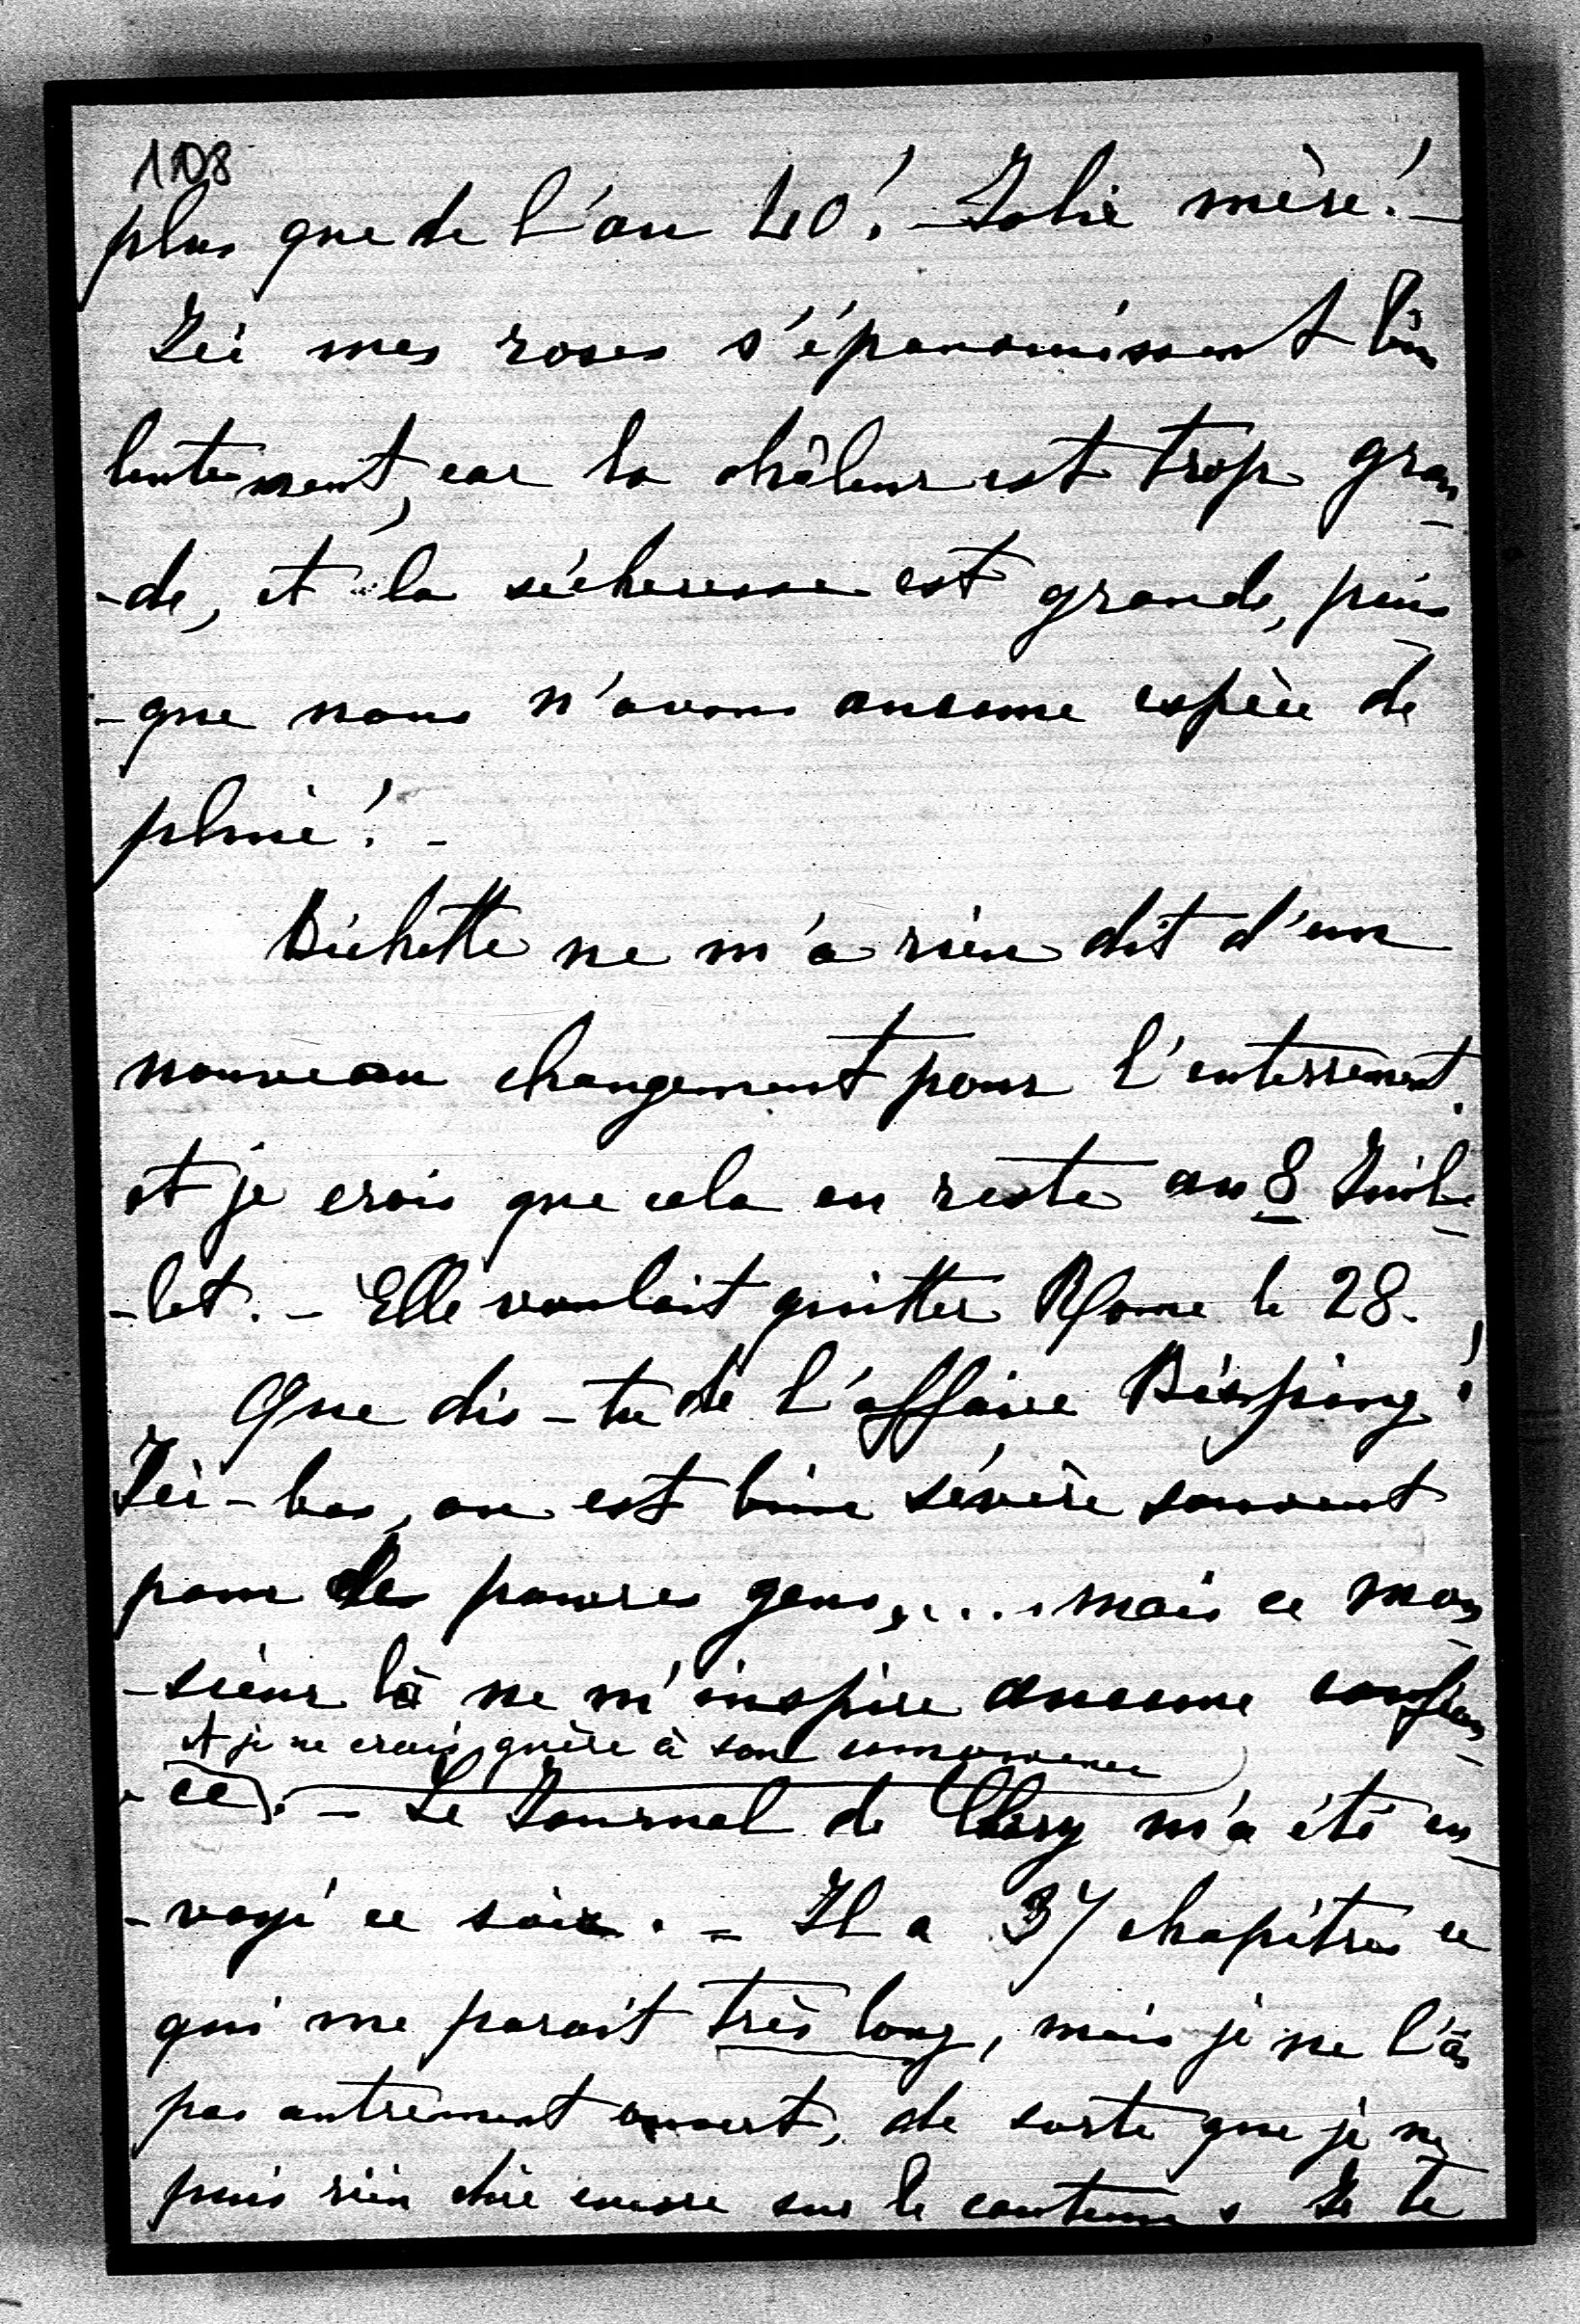 108
plus que de l'an 40! - Jolie mère! -
Ici mes roses s'épanouissent bien
lentement, car la châleur est trop gran
-de, et la sécheresse est grande, puis
-que nous n'avons aucune espèce de
pluie! -
Bichette ne m'a rien dit d'un
nouveau changement pour l'enterrement
et je crois que cela en reste au 8 Juil-
-let. - Elle voulait quitter Rome le 28.
Que dis-tu de l'affaire Bisping!
Ici-bas, on est bien sévère souvent
pour les pauvres gens, .... mais ce mon
-sieur là ne m'inspire aucune confian
et je ne crois guère à son innocence
-ce. - Le Journal de Cléry m'a été en
-voyé ce soir. - Il a 37 chapitres ce
qui me parait très long, mais je ne l'ai
pas autrement ouvert, de sorte que je ne
puis rien dire encore sur le contenu. Je te